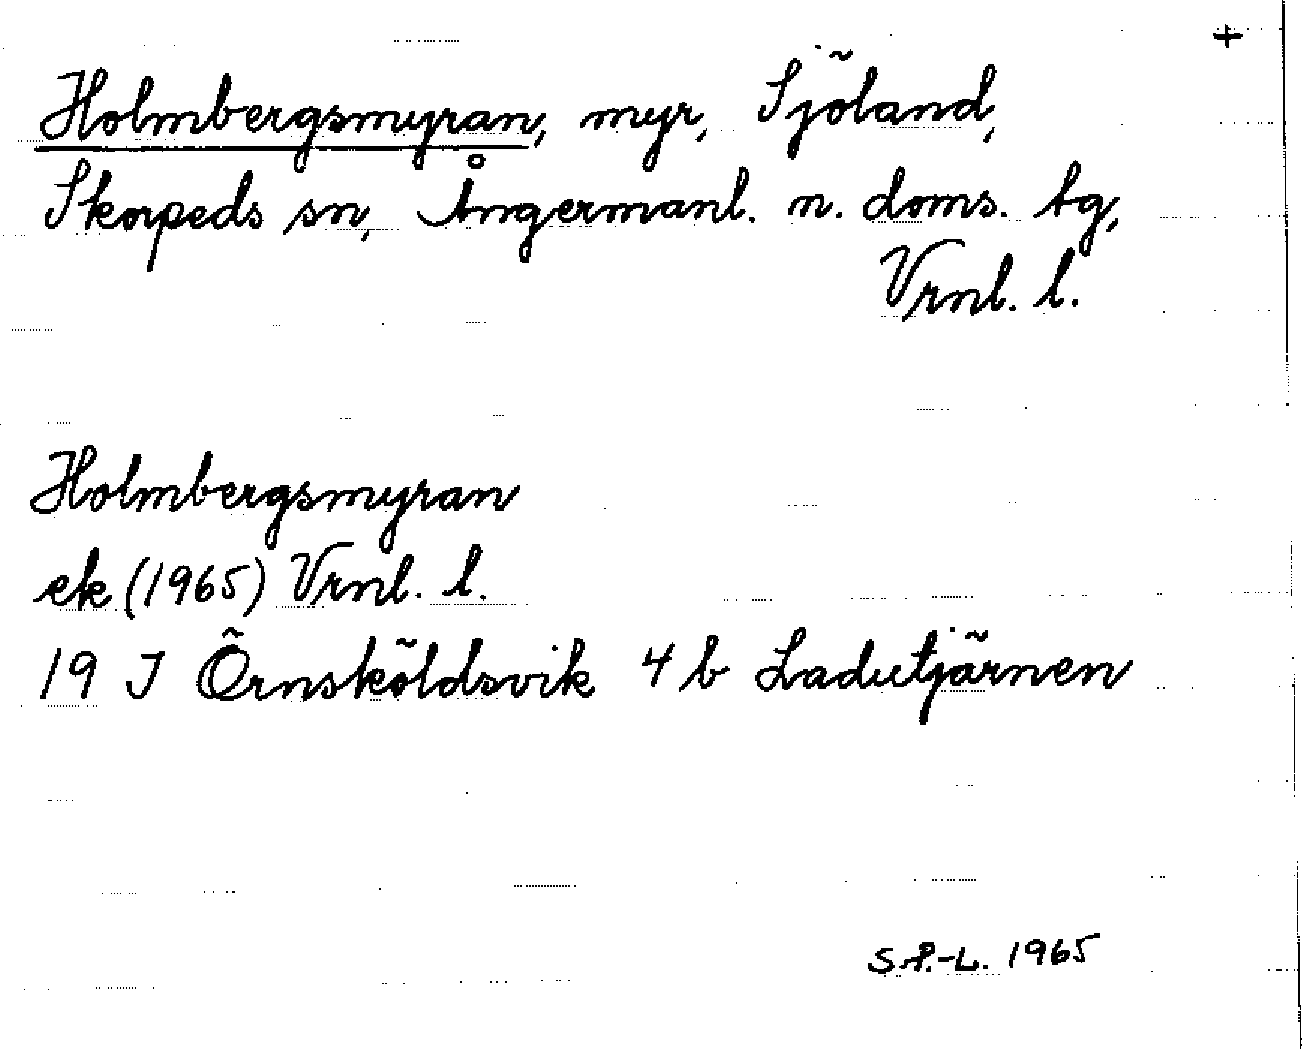 +
Holmbergsmyran, myr, Sjöland,
Skorpeds sn, Ångermanl. n. doms. tg,
Vrnl. l.
Holmbergsmyran
ek (1965) Vrnl. l.
19 J Örnsköldsvik 4 b Ladutjärnen
S.P.-L. 1965